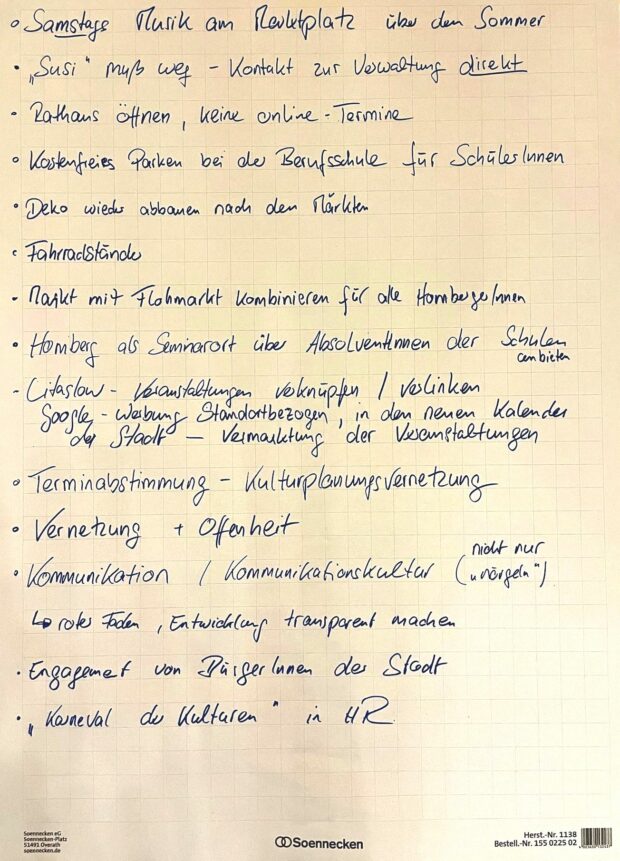 • Samstags Musik am Marktplatz über den Sommer
• „Susi" muß weg – Kontakt zur Verwaltung direkt
• Rathaus öffnen, keine online-Termine
• Kostenfreies Parken bei der Berufsschule für SchülerInnen
• Deko wieder abbauen nach den Märkten
• Fahrradständer
• Markt mit Flohmarkt kombinieren für alle HombergerInnen
• Homberg als Seminarort über AbsolventInnen der Schulen
anbieten
- Citaslow - Veranstaltungen verknüpfen / verlinken
Google-Werbung Standortbezogen, in den neuen Kalender
der Stadt – Vermarktung der Veranstaltungen
• Terminabstimmung – Kulturplanungsvernetzung
• Vernetzung + Offenheit
• Kommunikation / Kommunikationskultur (nicht nur
„nörgeln")
↳ roter Faden, Entwicklung transparent machen
• Engagemet von BürgerInnen der Stadt
• „Karneval der Kulturen" in HR
Soennecken eG
Soennecken-Platz
51491 Overath
soennecken.de
Soennecken
Herst.-Nr. 1138
Bestell.-Nr. 155 0225 02